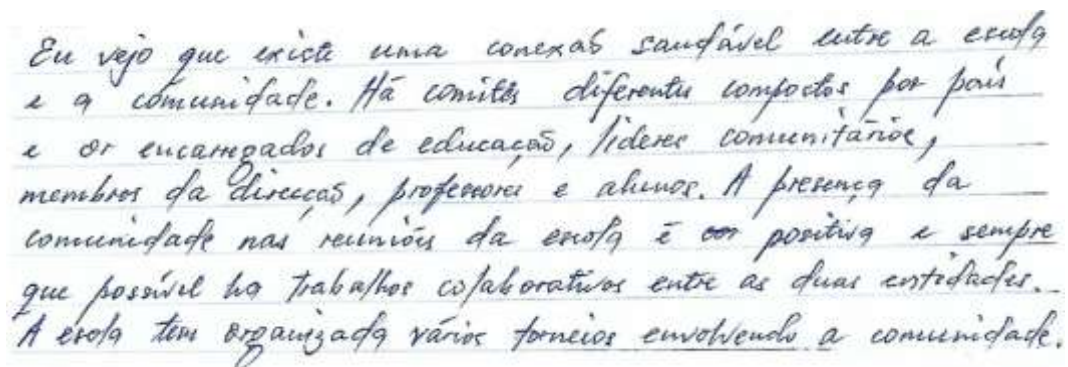 Eu vejo que existe uma conexão saudável entre a escola
e a comunidade. Há comités diferentes compostos por pais
e os encarregados de educação, lideres comunitários,
membros da direcção, professores e alunos. A presença da
comunidade nas reuniões da escola é positiva e sempre
que possível ha trabalhos colaborativos entre as duas entidades.
A escola tem organizada vários torneios envolvendo a comunidade.